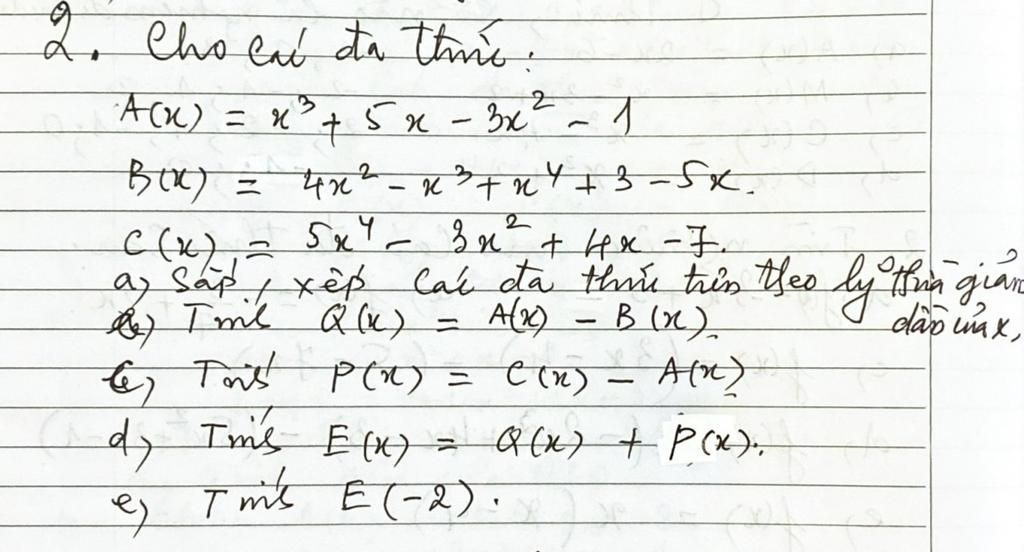 2. Cho các đa thức:
A(x) = x³ + 5x - 3x² - 1
B(x) = 4x² - x³ + x⁴ + 3 - 5x.
C(x) = 5x⁴ - 3x² + 4x - 7.
a) Sắp xếp các đa thức trên theo lỹ thừa giảm dần của x,
b) Tính Q(x) = A(x) - B(x).
c) Tính P(x) = C(x) - A(x)
d) Tính E(x) = Q(x) + P(x).
e) Tính E(-2).